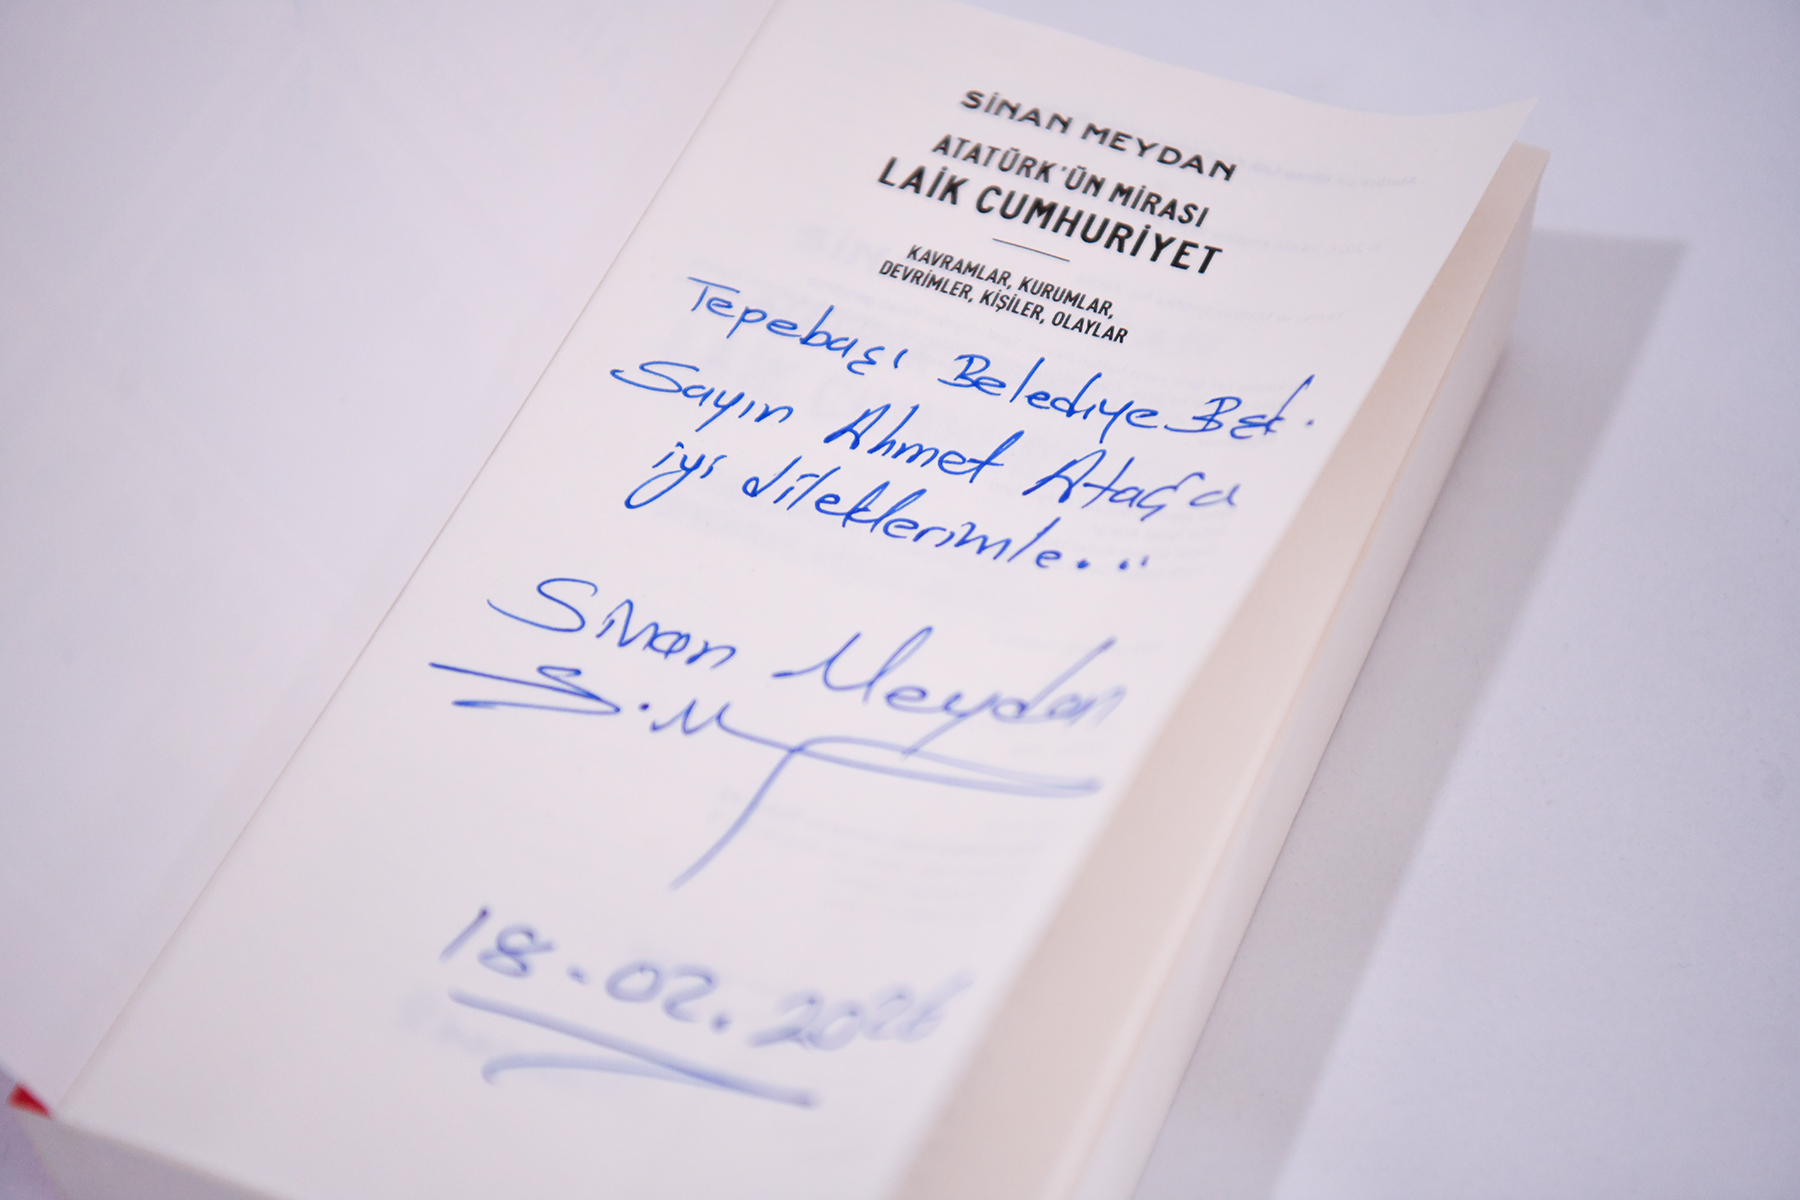 SİNAN MEYDAN
ATATÜRK'ÜN MİRASI
LAİK CUMHURİYET
KAVRAMLAR, KURUMLAR,
DEVRİMLER, KİŞİLER, OLAYLAR
Tepebaşı Belediye Bşk.
Sayın Ahmet Ataç'a
iyi dileklerimle...
Sinan Meydan
S.M
18.02.2026